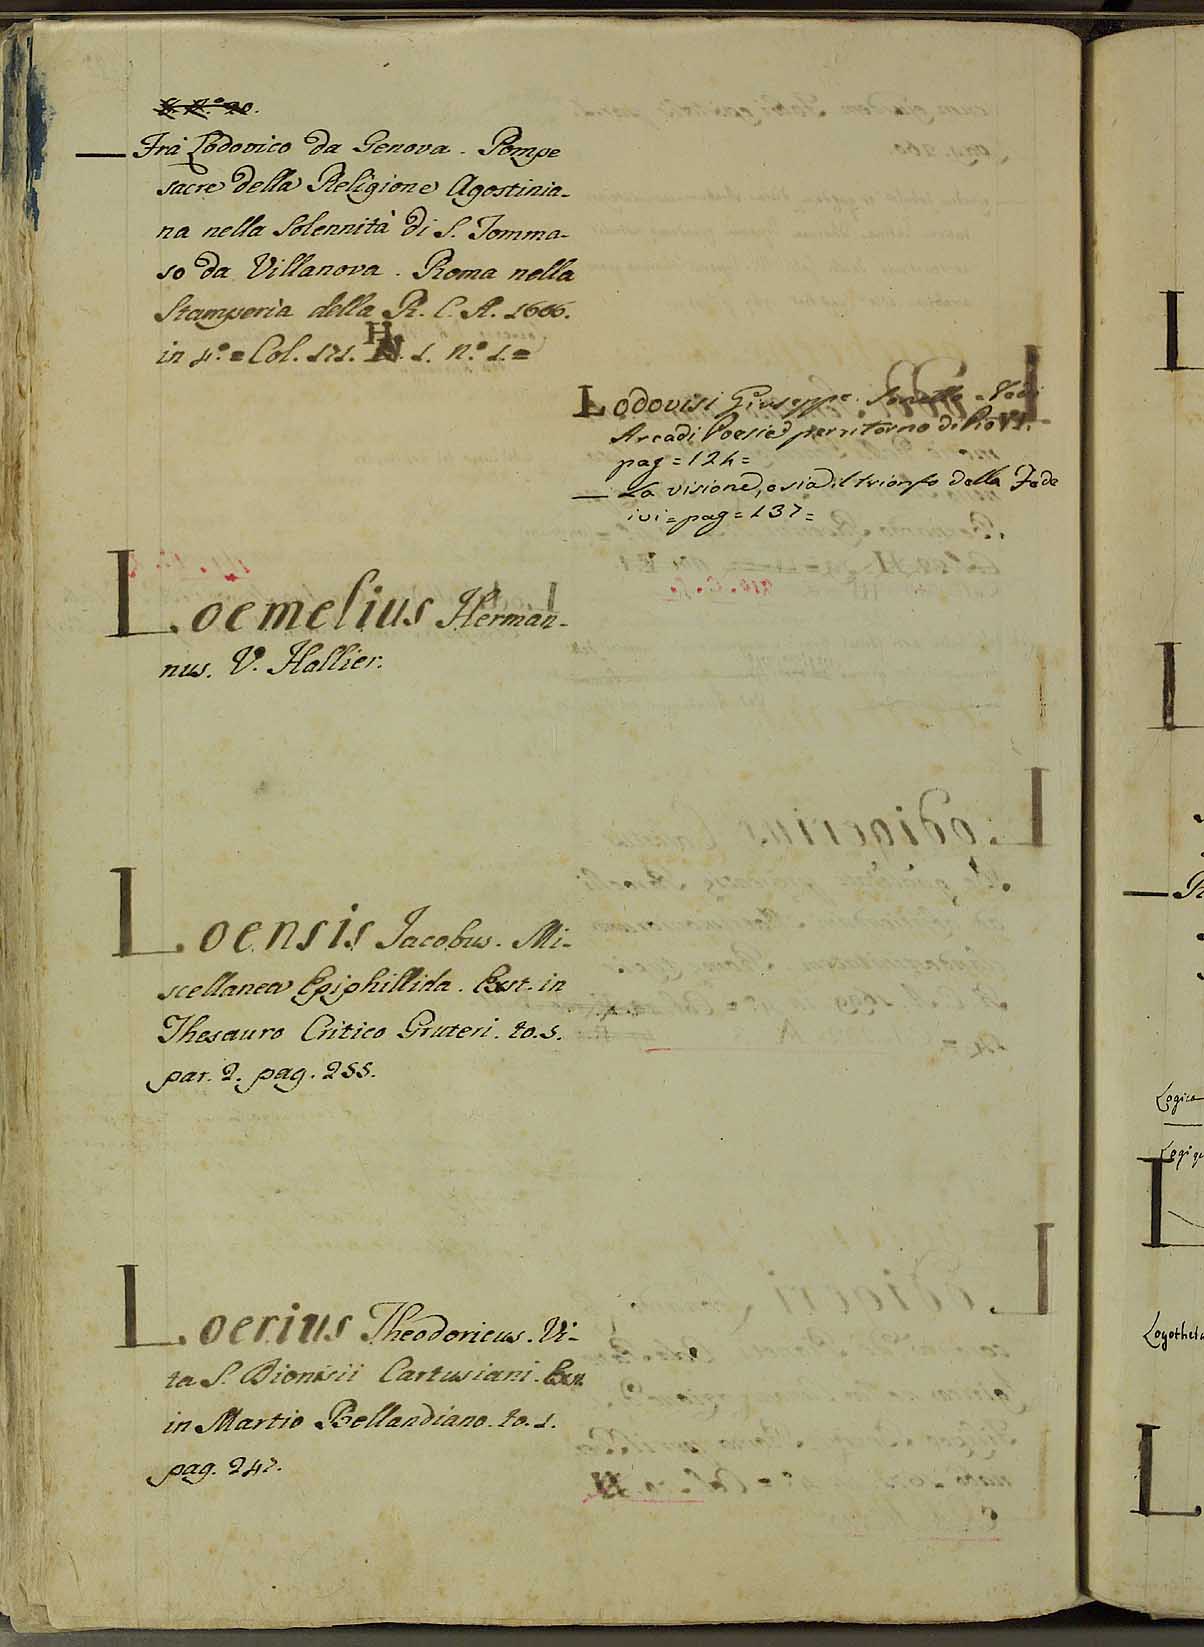 Fra Lodovico da Genova. Pompe
sacre della Religione Agostinia-
na nella Solennità di S. Tomma-
so da Villanova. Roma nella
Stamperia della R. C. A. 1666.
in 4.º = Col. 171. H. 1. N.º 1. =
Lodovisi Giuseppe Sonetto = Vedi
Arcadi Poesie per ritorno di Pio VI.
pag = 124 =
— La visione, o sia il trionfo della Fede
ivi = pag = 137 =
Loemelius Herman-
nus. V. Hallier.
Loensis Jacobus. Mi-
scellanea Epiphillida. Ext. in
Thesauro Critico Gruteri. to. 5.
par. 2. pag. 255.
Loerius Theodoricus. Vi-
ta S. Dionisii Cartusiani. Ext.
in Martio Bollandiano. to. 1.
pag. 247.
Logica
Logothet